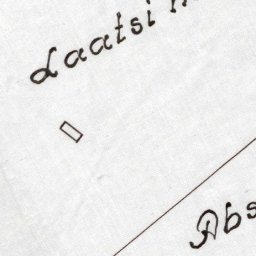 Laatsi
Abs